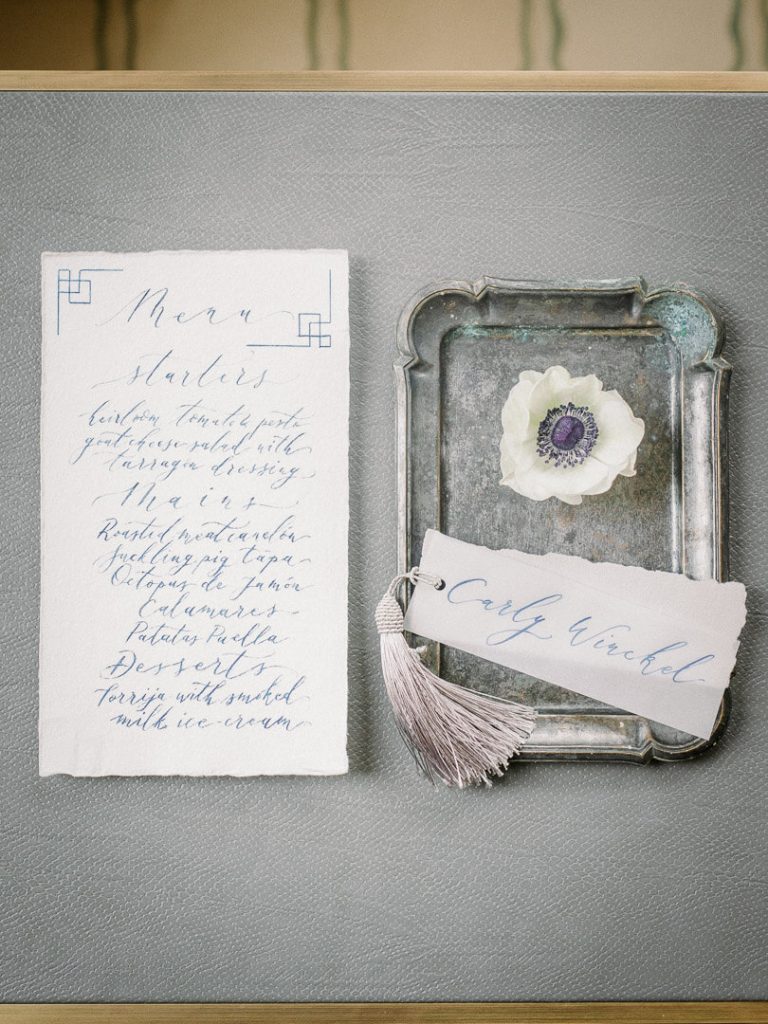 Menu
starters
heirloom tomato & pesto
goat cheese salad with
tarragon dressing
Mains
Roasted
Suckling pig tapa
Octopus de Jamón
Calamares
Patatas Puella
Desserts
Torrija with smoked
milk ice-cream
Carly Winckel